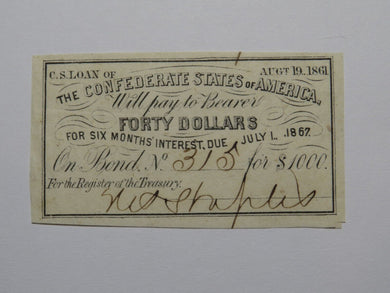 C.S. LOAN OF AUGT 19., 1861.
THE CONFEDERATE STATES OF AMERICA.
Will pay to Bearer
FORTY DOLLARS
FOR SIX MONTHS' INTEREST, DUE JULY 1., 1867.
On Bond, No. 315 for $1000.
For the Register of the Treasury.
Staples